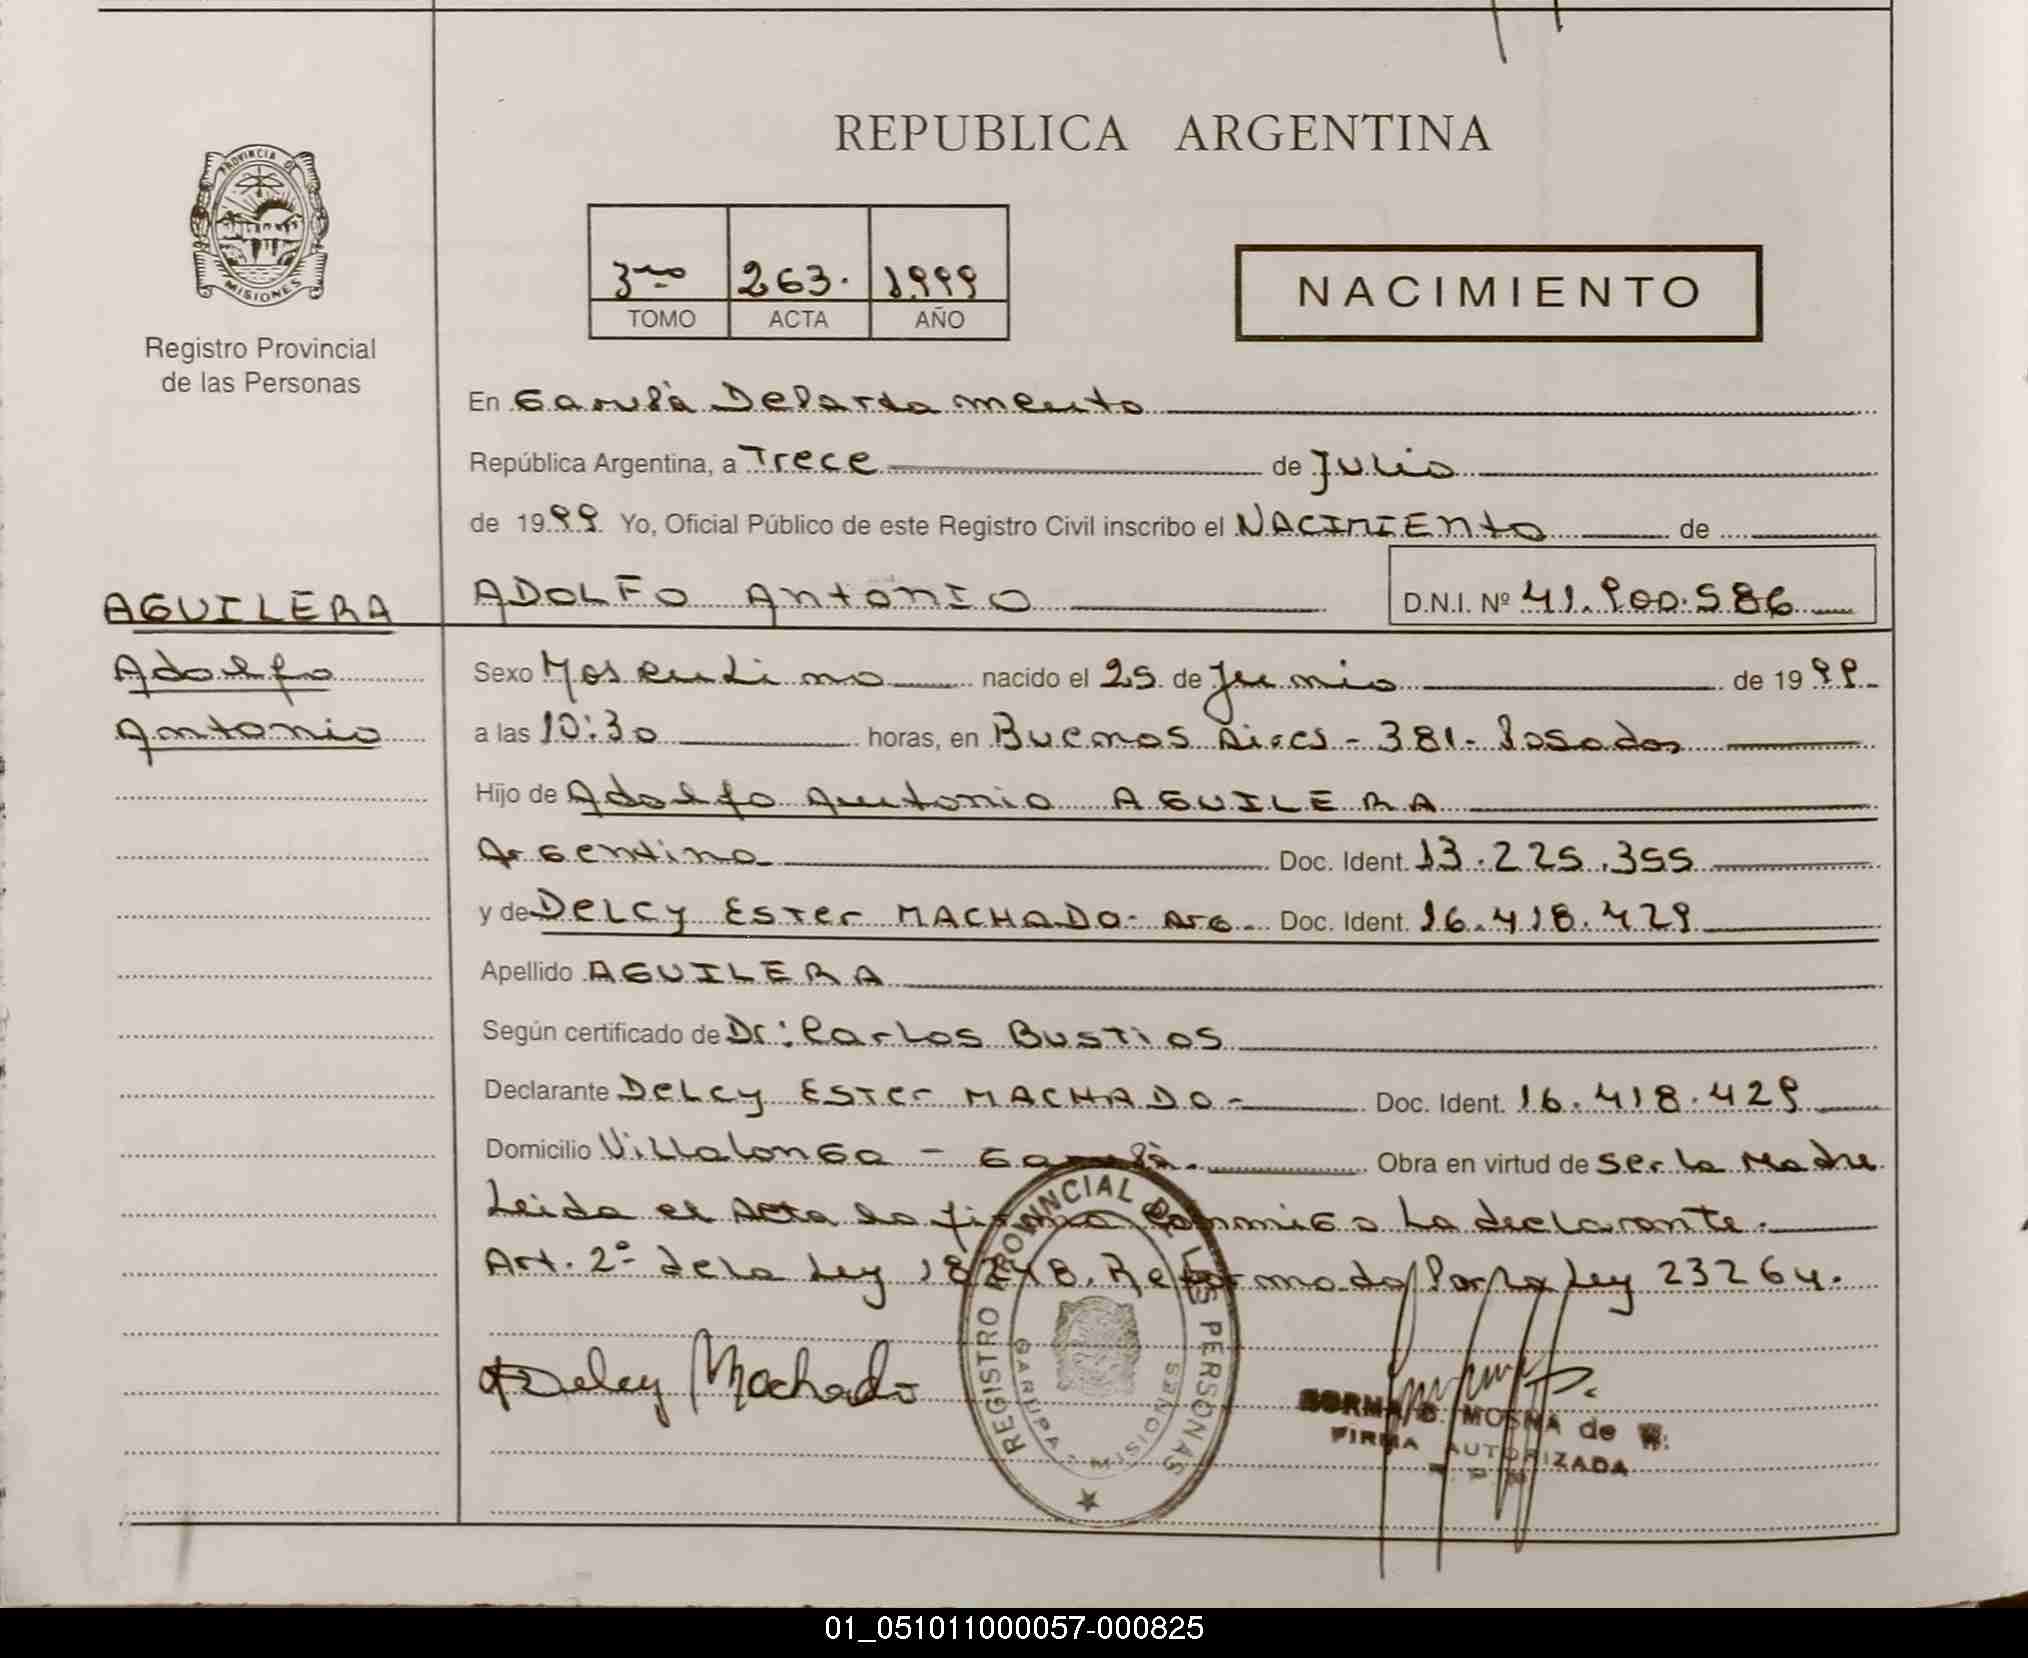 REPUBLICA ARGENTINA
PROVINCIA DE
MISIONES
Registro Provincial
de las Personas
3ro 263. 1999
TOMO ACTA AÑO
NACIMIENTO
En Garupà Departamento
República Argentina, a Trece de Julio
de 1999 Yo, Oficial Público de este Registro Civil inscribo el NACIMIENTO de
AGUILERA
Adolfo
Antonio
ADOLFO ANTONIO D.N.I. Nº 41.900.586
Sexo Masculino nacido el 25 de Junio de 1999
a las 10:30 horas, en Buenos Aires - 381 - Posadas
Hijo de Adolfo Antonio AGUILERA
Argentino Doc. Ident. 13.225.355
y de DELCY ESTER MACHADO - Arg. Doc. Ident. 16.418.429
Apellido AGUILERA
Según certificado de Dr: Carlos BUSTIOS
Declarante DELCY ESTER MACHADO - Doc. Ident. 16.418.429
Domicilio Villalonga - Garupà. Obra en virtud de ser la Madre
Leida el Acta la firma conmigo la declarante.
Art. 2º de la Ley 18248. Reformada Por la Ley 23264.
Delcy Machado
REGISTRO PROVINCIAL DE LAS PERSONAS
GARUPA - MISIONES
NORMA B. MOSNA de
FIRMA AUTORIZADA
01_051011000057-000825